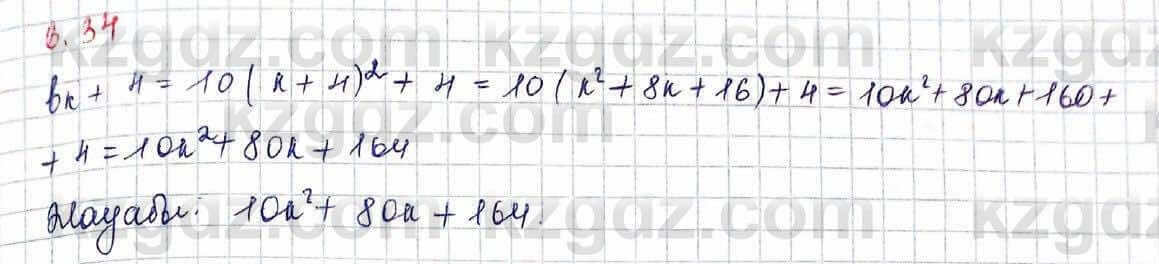 6.34
bn + 4 = 10(n + 4)² + 4 = 10(n² + 8n + 16) + 4 = 10n² + 80n + 160 +
+ 4 = 10n² + 80n + 164
Жауабы: 10n² + 80n + 164.
kzgdz.com kzgdz.com kzgdz.com
kzgdz.com
kzgdz.com kzgdz.com kzgdz